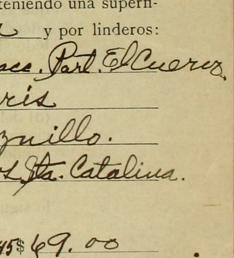 teniendo una superfi-
y por linderos:
Part. El Cuervo
rís
zuillo.
os Sta. Catalina.
45 $ 69.00